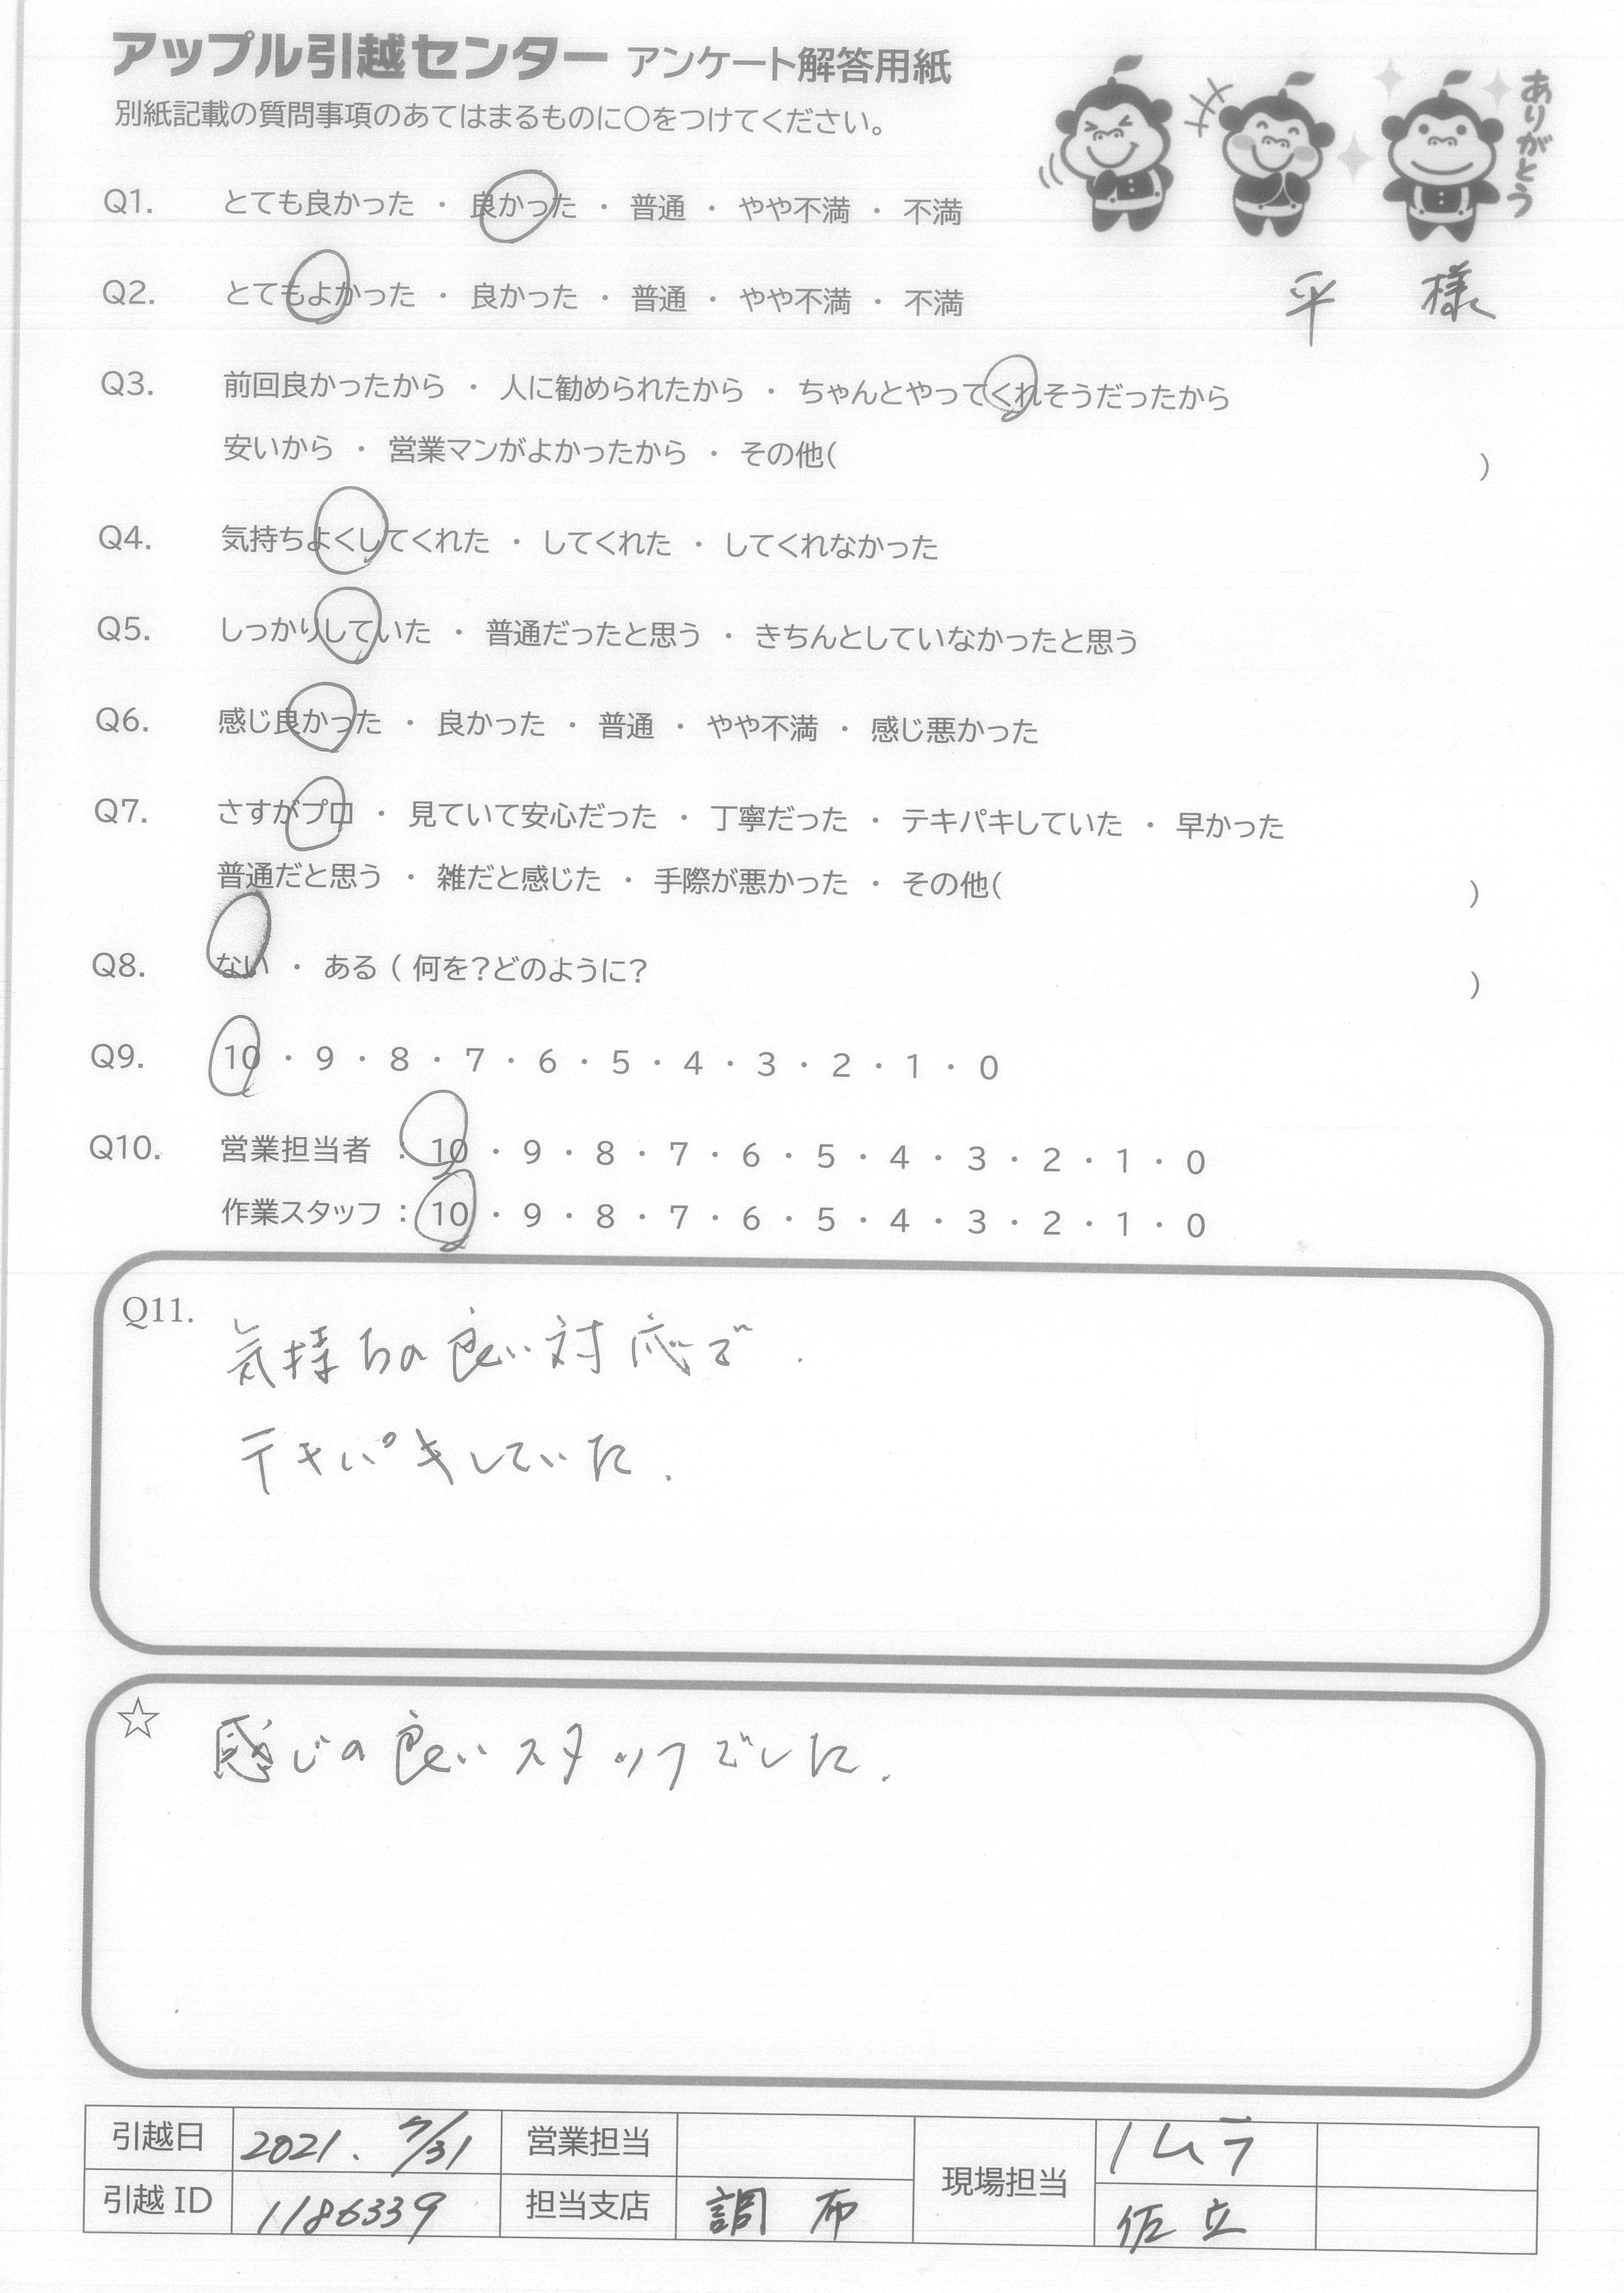 アップル引越センター アンケート解答用紙
別紙記載の質問事項のあてはまるものに○をつけてください。
ありがとう
Q1. とても良かった ・ 良かった ・ 普通 ・ やや不満 ・ 不満
Q2. とてもよかった ・ 良かった ・ 普通 ・ やや不満 ・ 不満
平 様
Q3. 前回良かったから ・ 人に勧められたから ・ ちゃんとやってくれそうだったから
安いから ・ 営業マンがよかったから ・ その他( )
Q4. 気持ちよくしてくれた ・ してくれた ・ してくれなかった
Q5. しっかりしていた ・ 普通だったと思う ・ きちんとしていなかったと思う
Q6. 感じ良かった ・ 良かった ・ 普通 ・ やや不満 ・ 感じ悪かった
Q7. さすがプロ ・ 見ていて安心だった ・ 丁寧だった ・ テキパキしていた ・ 早かった
普通だと思う ・ 雑だと感じた ・ 手際が悪かった ・ その他( )
Q8. ない ・ ある ( 何を?どのように? )
Q9. 10 ・ 9 ・ 8 ・ 7 ・ 6 ・ 5 ・ 4 ・ 3 ・ 2 ・ 1 ・ 0
Q10. 営業担当者 : 10 ・ 9 ・ 8 ・ 7 ・ 6 ・ 5 ・ 4 ・ 3 ・ 2 ・ 1 ・ 0
作業スタッフ : 10 ・ 9 ・ 8 ・ 7 ・ 6 ・ 5 ・ 4 ・ 3 ・ 2 ・ 1 ・ 0
Q11. 気持ちの良い対応で.
テキパキしていた.
☆ 感じの良いスタッフでした.
引越日 2021. 7/31 営業担当 現場担当
引越 ID 1186339 担当支店 調布 佐立